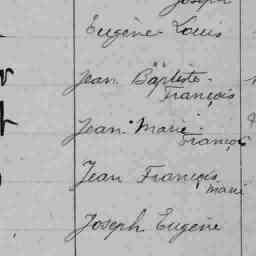 Joseph
Eugène Louis
Jean Baptiste
François
Jean Marie
François
Jean François
marie
Joseph Eugène